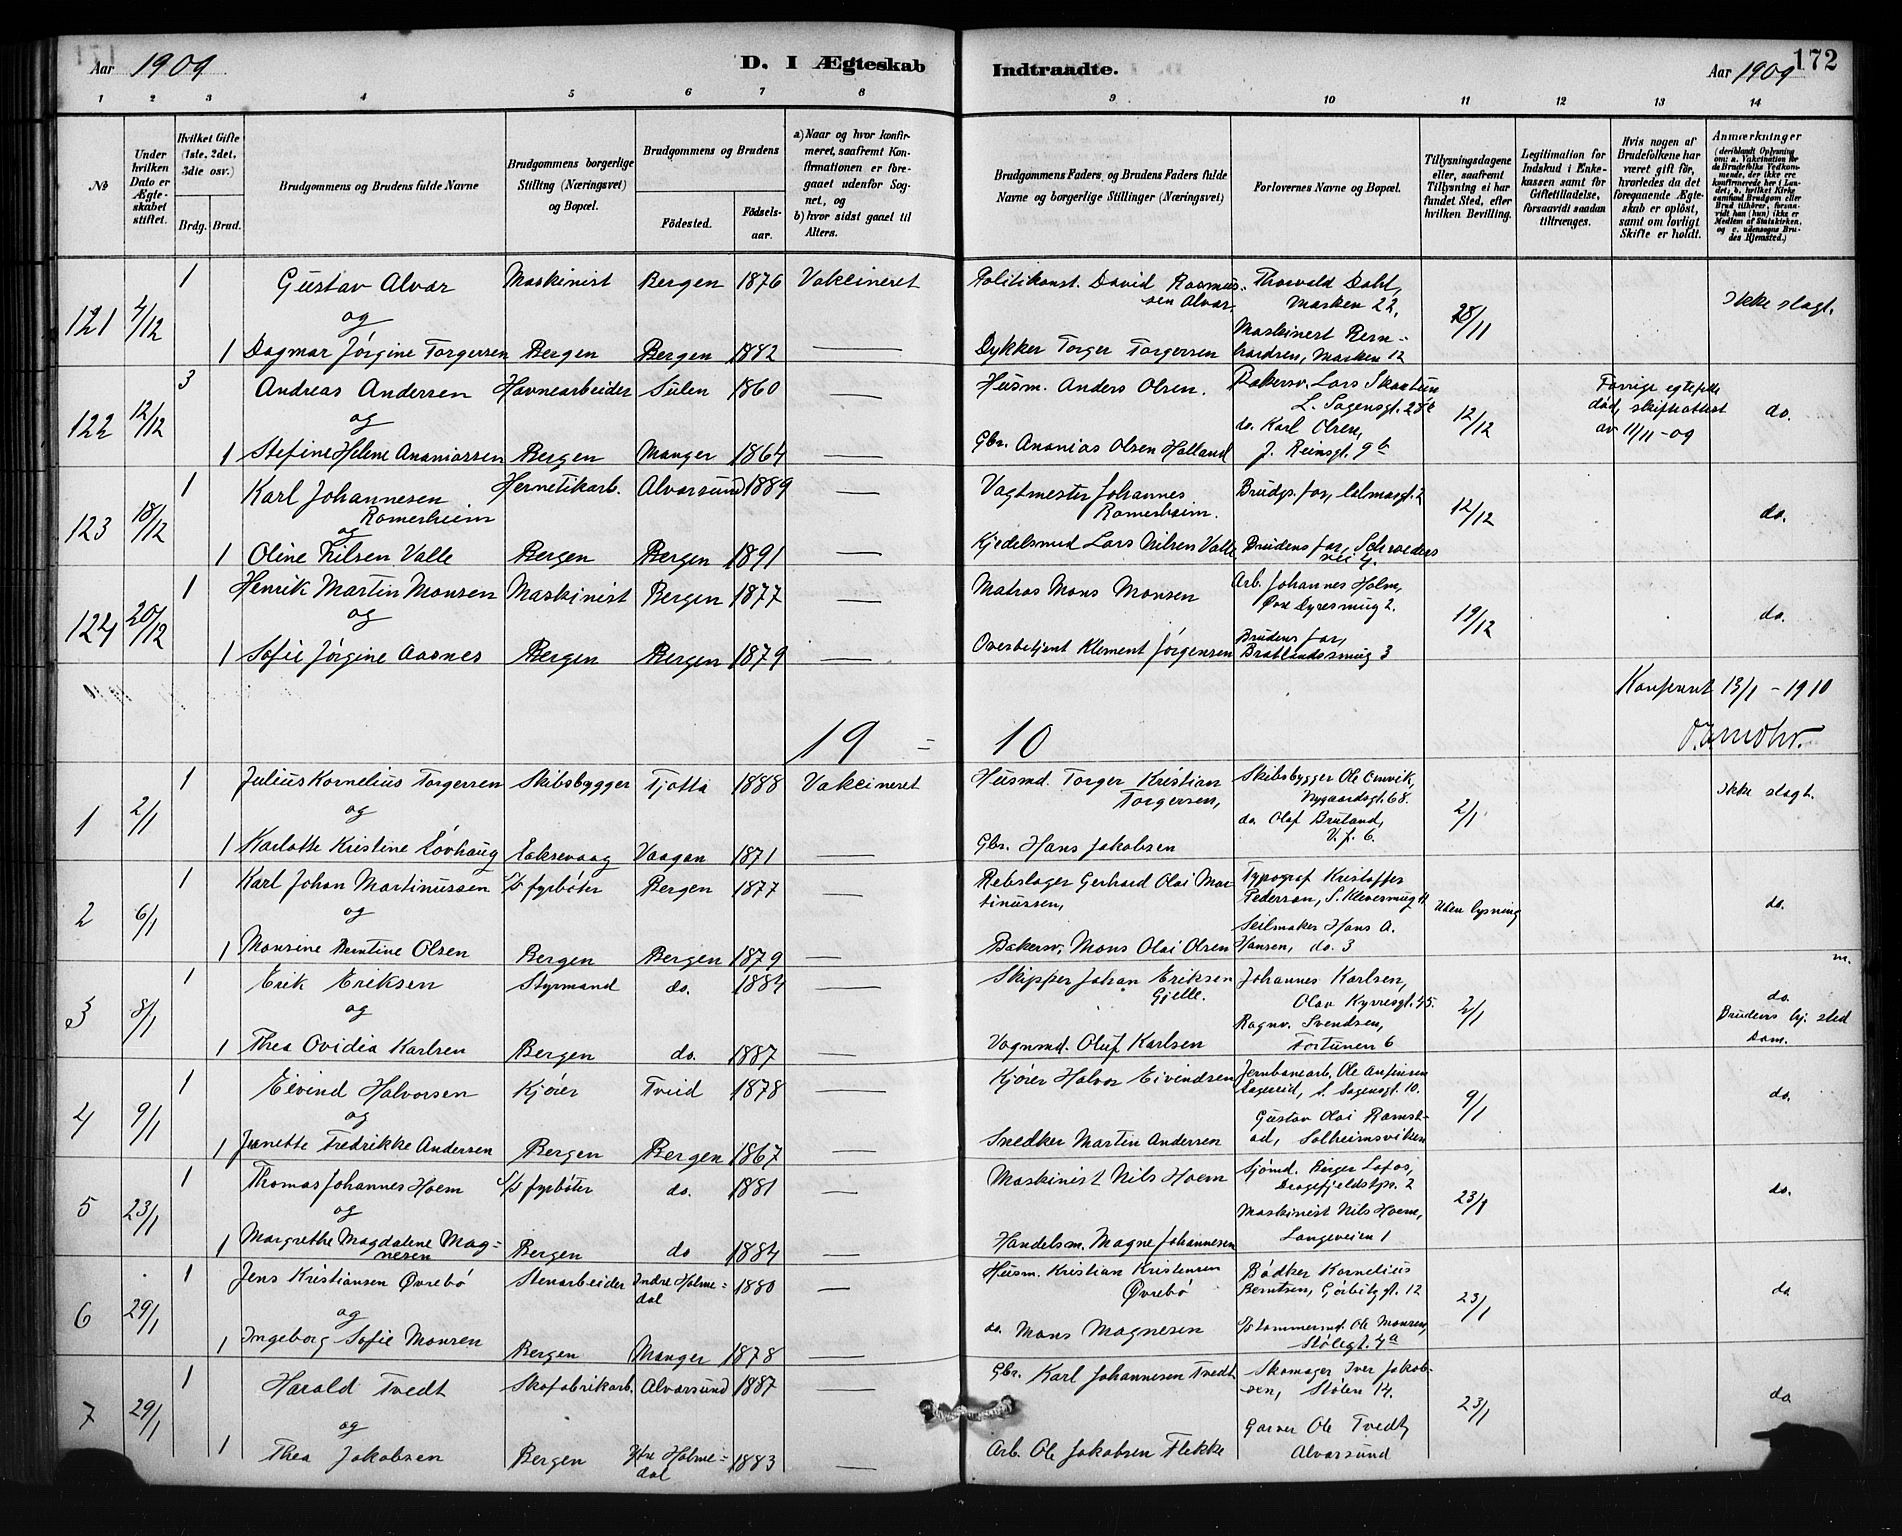 Aar 1909.
D. I Ægteskab
Indtraadte.
172
Aar 1909
1 2 3 4 5 6 7 8 9 10 11 12 13 14
No
Under hvilken Dato er Ægteskabet stiftet.
Hvilket Gifte (1ste, 2det, 3die osv.)
Brdg. Brud.
Brudgommens og Brudens fulde Navne
Brudgommens borgerlige Stilling (Næringsvei) og Bopæl.
Brudgommens og Brudens
Fødested.
Fødselsaar.
a) Naar og hvor konfirmeret, saafremt Konfirmationen er foregaaet udenfor Sognet, og
b) hvor sidst gaaet til Alters.
Brudgommens Faders og Brudens Faders fulde Navne og borgerlige Stillinger (Næringsvei)
Forlovernes Navne og Bopæl.
Tillysningsdagene eller, saafremt Tillysning ei har fundet Sted, efter hvilken Bevilling.
Legitimation for Indskud i Enkekassen samt for Giftetilladelse, forsaavidt saadan tiltrænges.
Hvis nogen af Brudefolkene har været gift før, hvorledes da det foregaaende Ægteskab er opløst, samt om lovligt Skifte er holdt.
Anmærkninger (deriblandt Oplysning om: a. Vakcination for de Brudefolks Vedkommende, der ikke ere konfirmerede her i Landet; b. hvilket Kirkesamfund Brudgom eller Brud tilhører, forsaavidt han (hun) ikke er Medlem af Statskirken, og c. udensogns Brudes Hjemsted.)
121 4/12 1 Gustav Alvar Maskinist Bergen 1876 Vakcineret Politikonst. David Rasmussen Alvar. Thorvald Dahl, Marken 22, 28/11 Ikke slagt.
og
1 Dagmar Jørgine Torgersen Bergen Bergen 1882 — Dykker Torger Torgersen Maskinist Bernhardsen, Marken 12
122 12/12 3 Andreas Andersen Havnearbeider Sulen 1860 — Husm. Anders Olsen. Bakersv. Lars L. Sagensgt. 12/12 Forrige egtefelle død, skifteattest av 11/11-09 do.
og
1 Stefine Helene Ananiassen Bergen Manger 1864 — Gbr. Ananias Olsen Halland do. Karl Olsen, J. Reinsgt. 9b
123 18/12 1 Karl Johannesen Romerheim Hermetikarb. Alvorsund 1889 — Vagtmester Johannes Romerheim. Brudgs. far, 12/12 do.
og
1 Oline Nilsen Valle Bergen Bergen 1891 — Kjedelsmed Lars Nilsen Valle Brudens far,
124 20/12 1 Henrik Martin Monsen Maskinist Bergen 1877 — Matros Mons Monsen Arb. Johannes Holm, Øvre Dyresmug 2. 19/12 do.
og
1 Sofie Jørgine Aasnes Bergen Bergen 1879 — Overbetjent Klement Jørgensen Brudens far, Bratlandssmug 3
Konferert 13/1-1910
19 = 10
1 2/1 1 Julius Kornelius Torgersen Skibsbygger Tjøtta 1888 Vakcineret Husmd. Torger Kristian Torgersen, Skibsbygger Ole Omvik, Nygaardsgt. 68. 2/1 Ikke slagt.
og
1 Karlotte Kristine Løvhaug Laksevaag Vaagan 1871 — Gbr. Hans Jakobsen do. Olaf Bruland, V. f. 6.
2 6/1 1 Karl Johan Martinussen S/S fyrbøter Bergen 1877 — Rebslager Gerhard Olai Martinussen, Typograf Kristoffer Pederson, S. Klevesmug Uden lysning do.
og
1 Monsine Berntine Olsen Bergen Bergen 1879 — Bakersv. Mons Olai Olsen Seilmaker Hans A. Hansen, do. 3
m.
3 8/1 1 Erik Eriksen Styrmand do. 1884 — Skipper Johan Eriksen Gjelle. Johannes Karlsen, Olav Kyrresgt. 45. 2/1 do.
og
1 Thea Ovidia Karlsen Bergen do. 1887 — Vognmd. Oluf Karlsen Ragnv. Svendsen, Fortunen 6 Brudens hj. sted Dom.
4 9/1 1 Eivind Halvorsen Kjører Tveid 1878 — Kjører Halvor Eivindsen Jernbanearb. Ole L. Sagensgt. 10. 9/1 do.
og
1 Jeanette Fredrikke Andersen Bergen Bergen 1867 — Snedker Martin Andersen Gustav Olai Ramstad, Solheimsviken
5 23/1 1 Thomas Johannes Hoem S/S fyrbøter do. 1881 — Maskinist Nils Hoem Sjømd. Birger Lofos, Dragefjeldstrp. 2 23/1 do.
og
1 Margrethe Magdalene Magnesen Bergen do 1884 — Handelsm. Magne Johannesen Maskinist Nils Hoem, Langeveien 1
6 29/1 1 Jens Kristiansen Øvrebø Stenarbeider Indre Holmedal 1880 — Husm. Kristian Kristensen Øvrebø Bødker Kornelius Berntsen, 12 23/1 do
og
1 Ingeborg Sofie Monsen Bergen Manger 1878 — do. Mons Magnesen Ole Monsen, Stølegt. 4a
7 29/1 1 Harald Tvedt Skofabrikarb. Alvorsund 1887 — Gbr. Karl Johannesen Tvedt Skomager Iver Jakobsen, Stølen 14. 23/1 do
og
1 Thea Jakobsen Bergen Ytre Holmedal 1883 — Arb. Ole Jakobsen Flekke Garver Ole Tvedt, Alvorsund